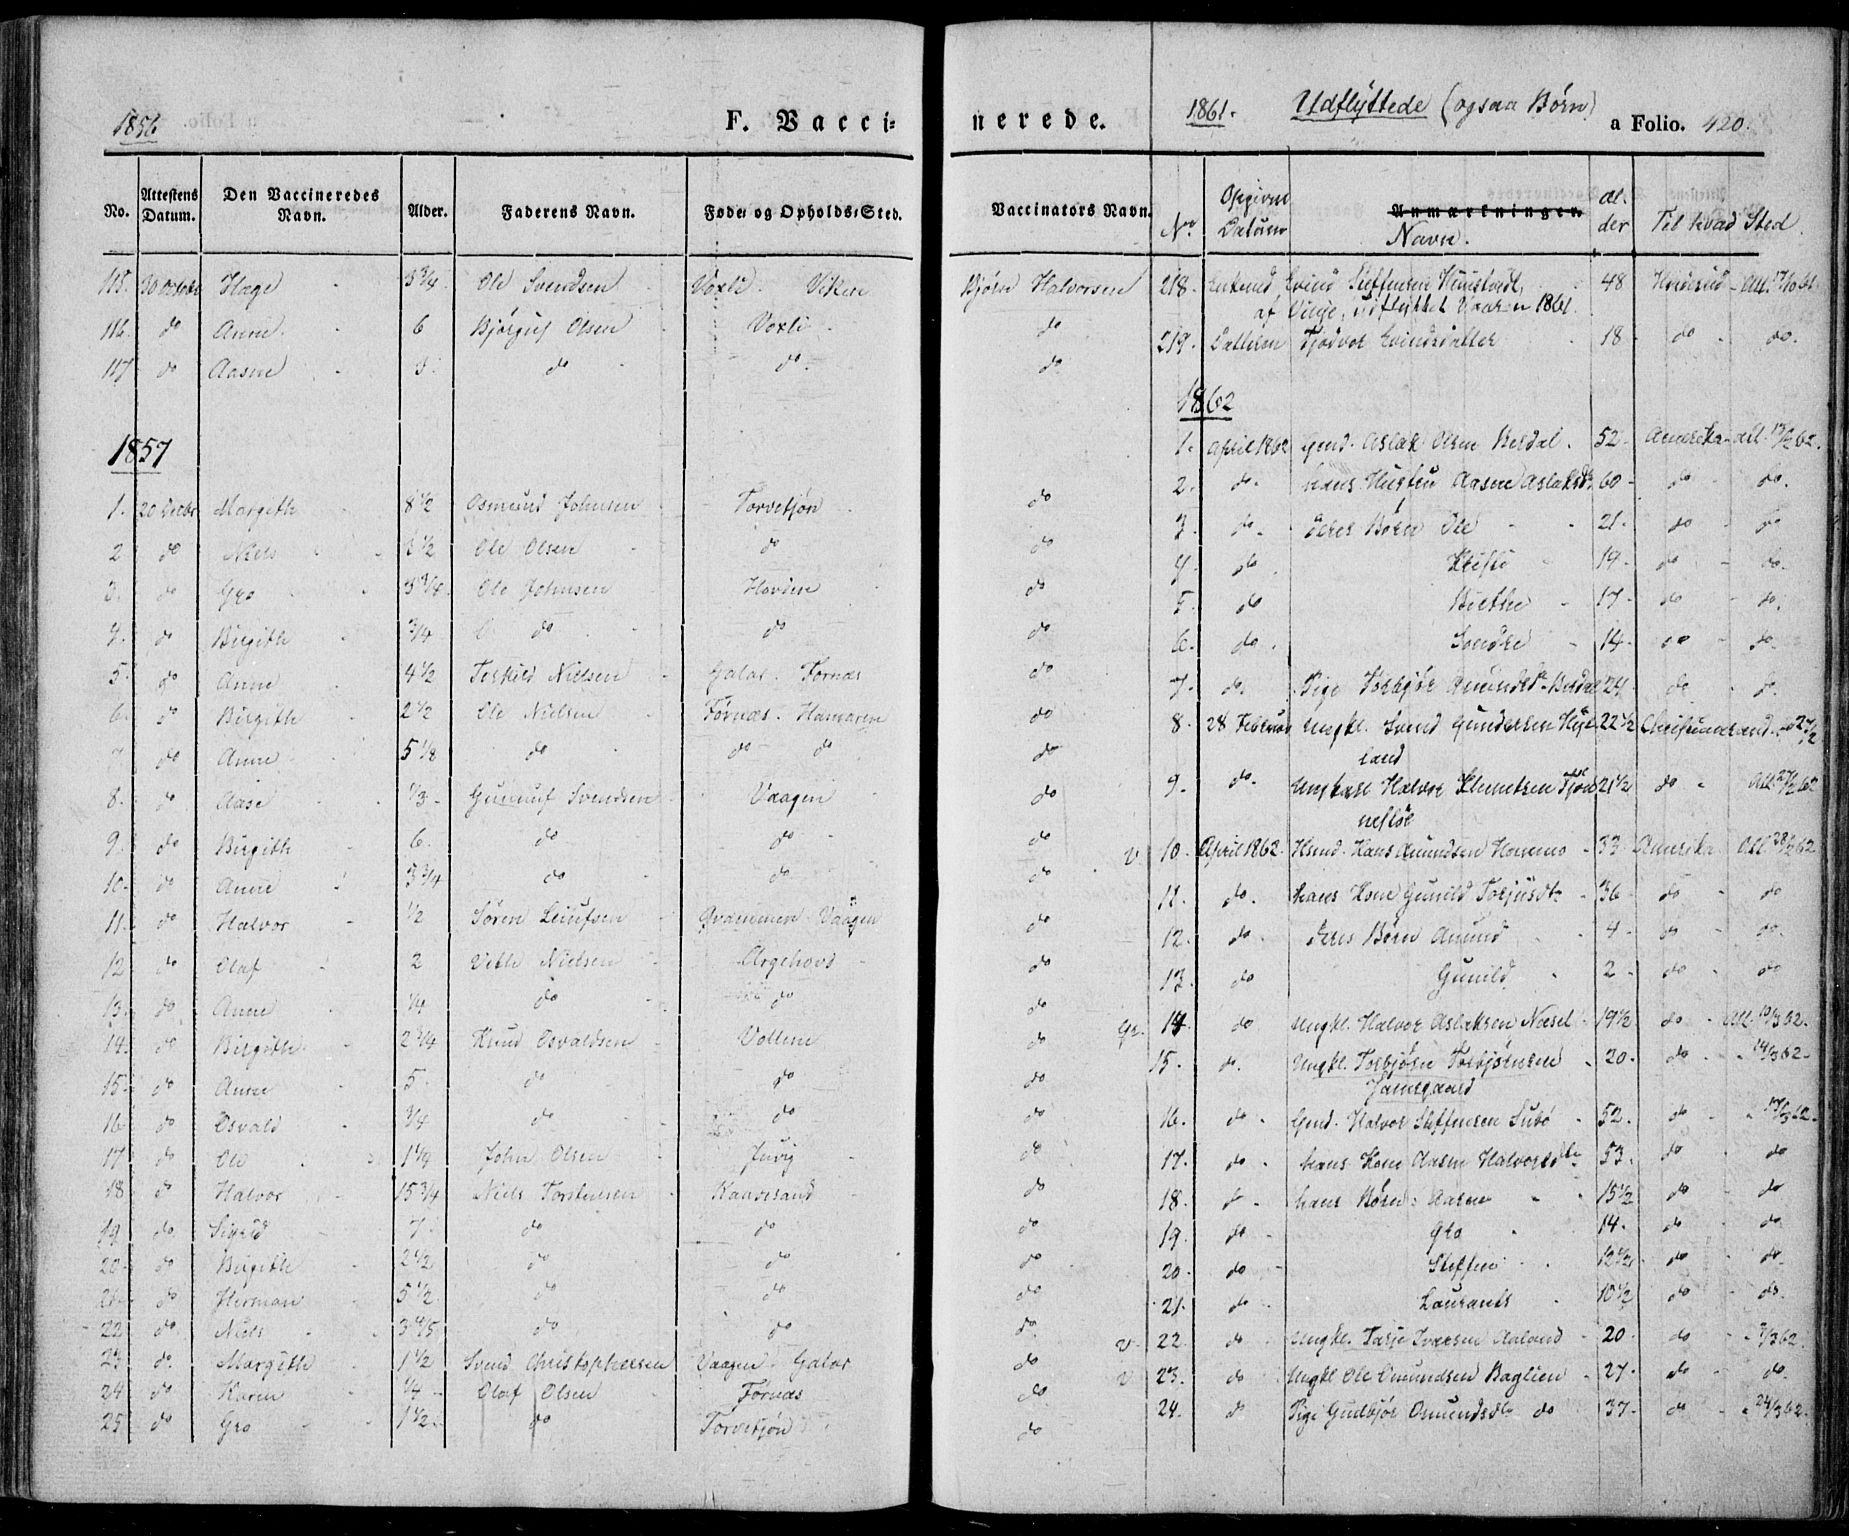 1856
F. Vacci-
No. Attestens Datum. Den Vaccineredes Navn. Alder. Faderens Navn. Føde- og Opholds-Sted.
115. 30 Octobr Hage 3 3/4 Ole Svendsen Voxli. Viken
116. do Anne 6 Bjørguf Olsen Voxli
117 do Aasne 3 do do
1857
1. 20 Decbr Margith 8 1/2 Osmund Johnsen Torvetjøn
2 do Niels 3 1/2 Ole Olsen do
3. do Gro Ole Johnsen Hovden
4. do Birgith 3/4 do do
5. do Anne 4 1/2 Torkild Nielsen Galar. Førnæs
6. do Birgith 2 1/2 Ole Nielsen Førnæs. Hamaren
7 do Anne 5 1/8 do do do
8. do Aase 1/3 Gunnuf Svendsen Vaagen
9. do Birgith 6. do do
10. do Anne 3 3/4 do do
11. do Halvor 1/2 Søren Leiufsen Qvammen Vaagen
12 do Olaf 2 Vetle Nielsen Argehovd
13. do Anne 1/4 do do
14. do Birgith 2 3/4 Knud Osvaldsen Vollene
15. do Anne 5. do do
16 do Osvald 3/4 do do
17 do Ole John Olsen Juvig
18 do Halvor 15 3/4 Niels Torstensen Raavesand
19 do Sigrid 7. do do
20 do Birgith 2 1/2 do do
21 do Herman 5 1/2 do do
22 do Niels 3 4/5 do do
23 do. Margith 1 1/2 Svend Christophersen Vaagen. Galar
24 do Karen 1/4 Olaf Olsen Førnæs
25 do Gro 1 1/2 do Torvetjøn
nerede. 1861. Udflyttede (ogsaa Børn) a Folio. 420.
Vaccinators Navn. No. Opgivne Datum Anmærkninger. Navn. Alder Til hvad Sted.
Bjørn Halvorsen 218. Enkmd Eivind Steffensen 48 Att.
af Vinje, udflyttet Vaaren 1861.
do 219. Datteren Tjodvor Eivindsdatter 18 do do.
do
1862
1. April 1862 Gmd. Aslak Olsen Berdal. 52 Amerika Att. 62.
do 2. do. hans Hustru Aasne Aslaksdr 60 do do.
do 3. do. deres Børn Ole 21. do do
do 4. do. Kristi 19. do do.
do 5. do Birthe 17. do do.
do 6. do. Sondre 14. do do.
do 7. do. Pige Torbjør Amundsdr Berdal 24. do do.
do 8. 28 Februar Ungkl. Svend Gundersen Hyl- 22 1/2 Christiansand 27/2
do land
do 9. do. Ungkarl Halvor Klemetsen Tjøn- 21 1/2 do Att. 27/2 62
do nefløs
v. 10. April 1862. Hsmd. Hans Amundsen Hommo 33 Amerika Att. 28/2 62
do 11. do. hans Kone Gunild Torjusdtr 36 do do
do 12. do. deres Børn Amund 4 do do.
do 13. do Gunild 2 do do
do Gr. 14 do Ungkl. Halvor Aslaksen Næsel 19 1/2 do Att. 10/3 62.
do 15. do. Ungkl. Torbjørn Torbjørnsen 20. do 14/3 62
do Jamsgaard
do 16. do Gmd. Halvor Steffensen Subø 52. do 17/3 62
do 17. do hans Kone Aasne Halvorsdtr 53. do do
do 18. do hans Børn: Aasne 15 1/2 do do
do 19. do Gro 14. do do
do 20. do Steffen 12 1/2 do do
do 21. do Laurants 10 1/2 do do.
do v. 22. do Ungkl. Tarje Iversen Aaland 20. do 62.
do v 23. do Ungkl Ole Omundsen Baglien 27. do do.
do 24. do Pige Gudbjør Omundsdtr do 37. do 24/3 62.
do